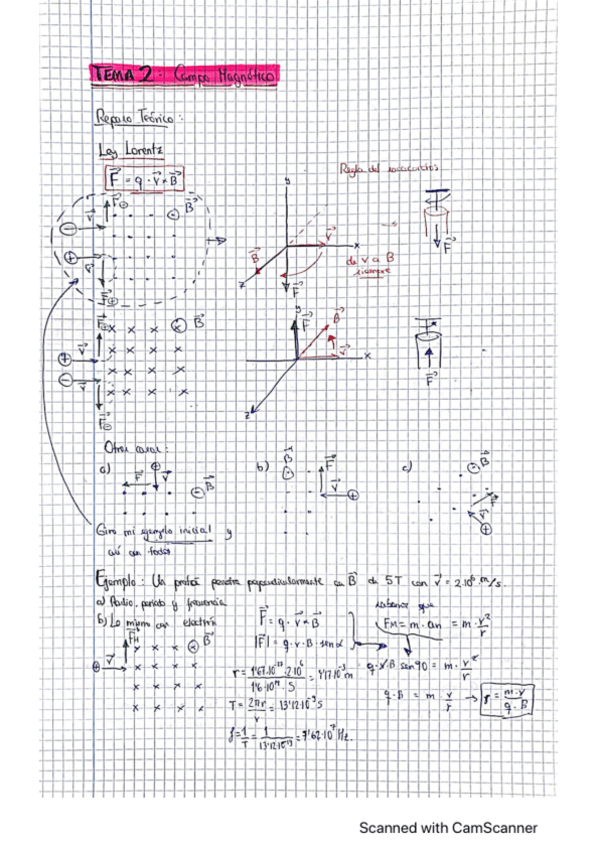 TEMA 2. Campo Magnético
Repaso Teórico:
Ley Lorentz
F = q · v × B
Regla del sacacorchos
B
v
F
y
x
z
de v a B
siempre
F
B
v
F
y
x
z
F
Otros casos:
a)
F
v
B
b)
B
F
v
c)
B
v
Giro mi ejemplo inicial y
así con todos
Ejemplo: Un protón penetra perpendicularmente en B de 5T con v = 2·10⁶ m/s.
a) Radio, periodo y frecuencia
b) Lo mismo con electrón
F = q · v × B
|F| = q · v · B · sen α
sabemos que
FM = m · an = m · v²/r
q · v · B sen 90 = m · v²/r
q · B = m · v/r → r = m·v / q·B
T = 2πr/v = 13'12·10⁻⁹ s
f = 1/T = 7'62·10⁷ Hz.
Scanned with CamScanner